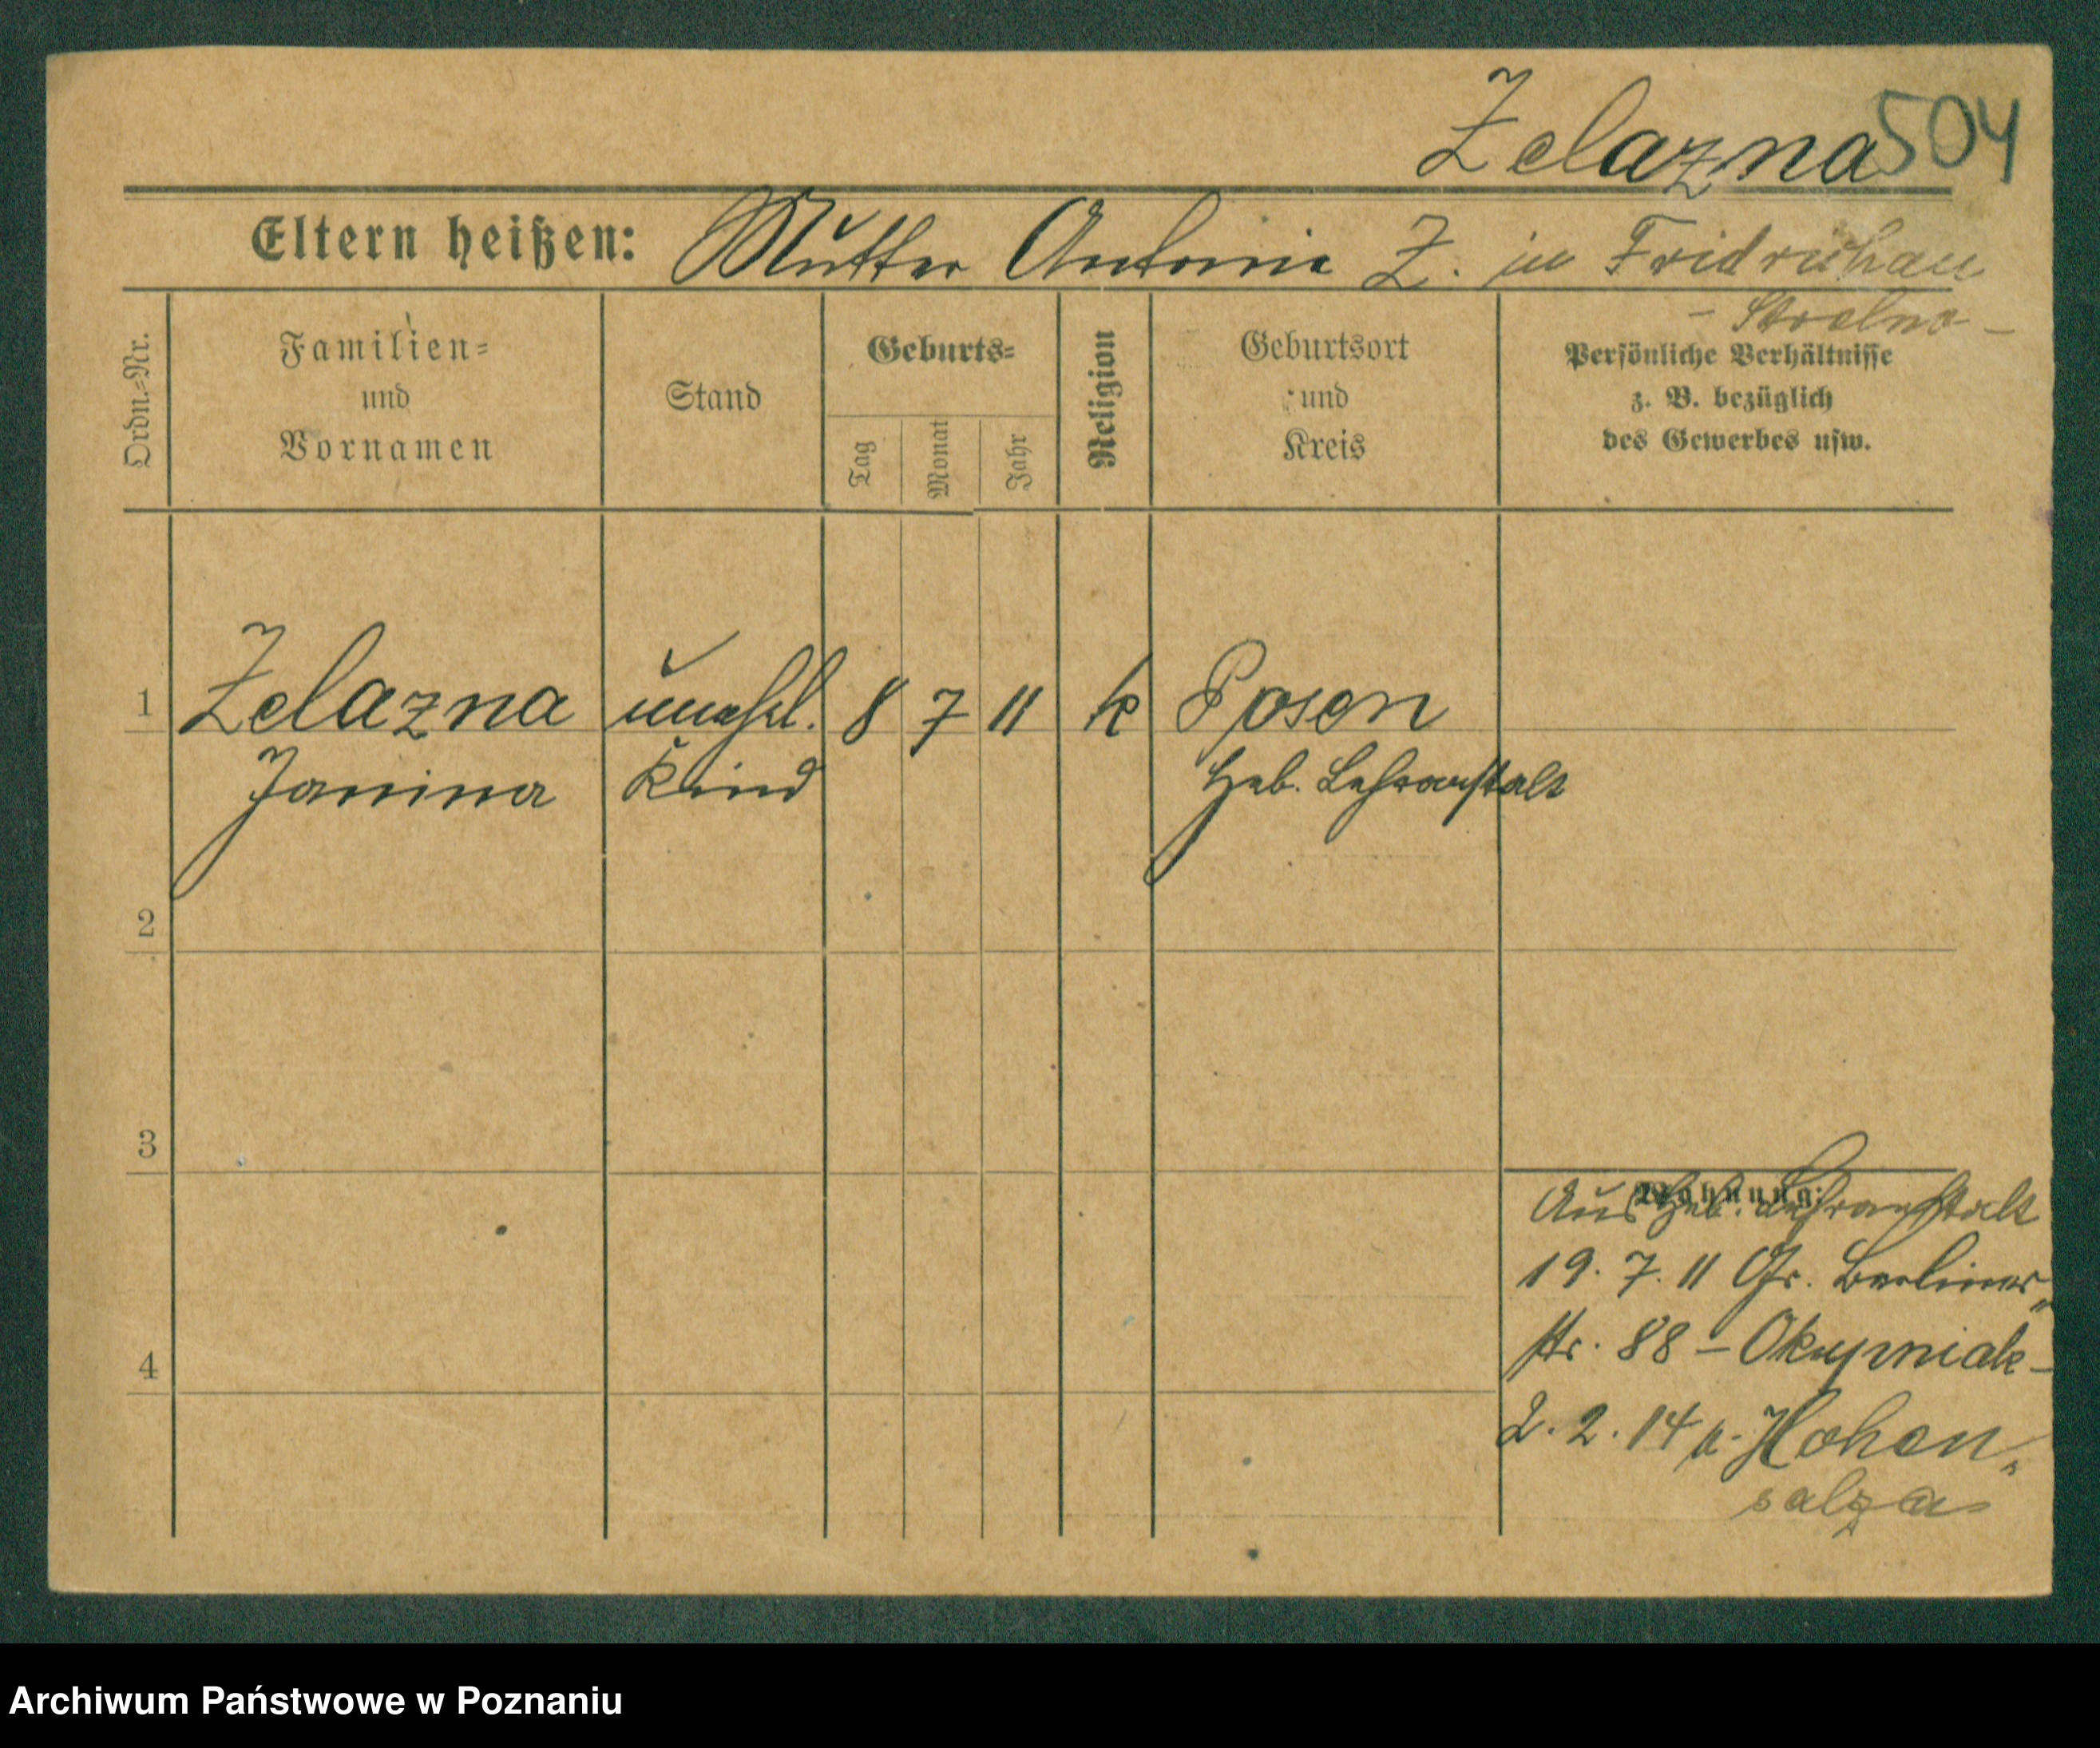 Zelazna 504
Eltern heißen: Mutter Antonie Z. in Fridrichau
- Strelno -
Ordn.=Nr.
Familien=
und
Vornamen
Stand
Geburts=
Tag
Monat
Jahr
Religion
Geburtsort
und
Kreis
Persönliche Verhältnisse
z. B. bezüglich
des Gewerbes usw.
1 Zelazna unehl. 8 7 11 k Posen
Janina Kind Heb. Lehranstalt
2
3
Wohnung:
Aus Heb. Lehranstalt
19. 7. 11 Gr. Berliner„
4
str. 88 –
2. 2. 14 n. Hohen„
salza
Archiwum Państwowe w Poznaniu